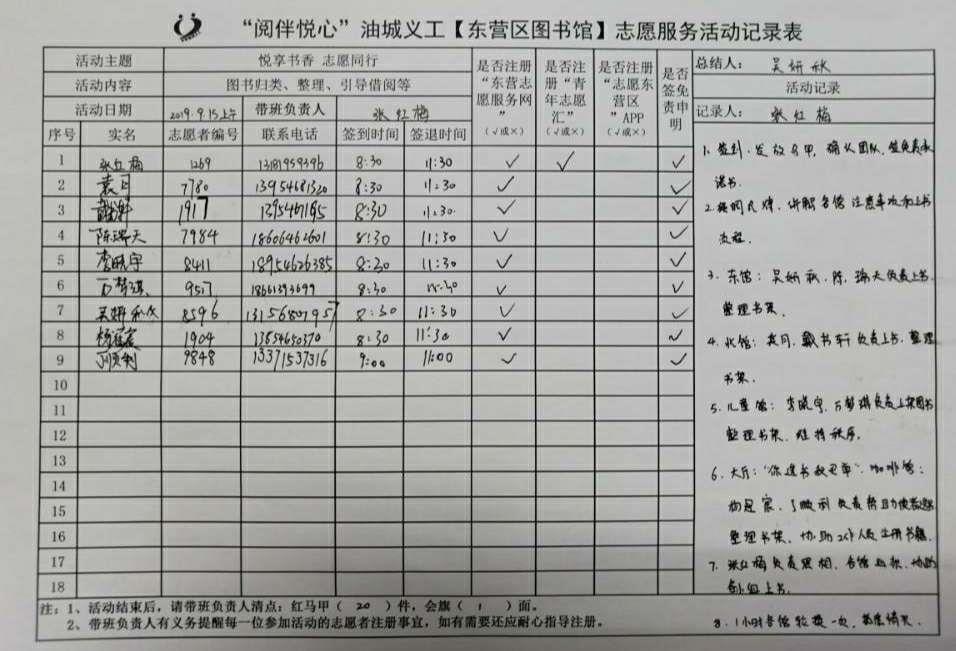 “阅伴悦心”油城义工【东营区图书馆】志愿服务活动记录表
活动主题 悦享书香 志愿同行 是否注册“东营志愿服务网”（√或×） 是否注册“青年志愿汇”（√或×） 是否注册“志愿东营区”APP（√或×） 是否签免责申明 总结人： 吴妍秋
活动内容 图书归类、整理、引导借阅等 活动记录
活动日期 2019.9.15上午 带班负责人 张红梅 记录人： 张红梅
序号 实名 志愿者编号 联系电话 签到时间 签退时间
1 张红梅 1269 13181959396 8:30 11:30 √ √ √
2 袁月 7780 13954681320 8:30 11:30 √ √
3 1917 8:30 11:30 √ √
4 陈瑞天 7984 18606462601 8:30 11:30 √ √
5 李晓宇 8411 18954626385 8:30 11:30 √ √
6 万梦琪 9517 18661393699 8:30 √ √
7 吴妍秋 8596 13156807957 8:30 11:30 √ √
8 1904 13854650370 8:30 11:30 √ √
9 9848 13371537316 9:00 11:00 √ √
10
11
12
13
14
15
16
17
18
1、签到、发放马甲，确认团队，签免责承
诺书.
流程.
3、东馆：吴妍秋、陈瑞天负责上书、
整理书架.
负责上书、整理
书架.
5、儿童馆：李晓宇、万梦琪负责上架图书
整理书架、维持秩序.
6、大厅：“你选书我买单”、咖啡馆：
整理书架、协助工作人员注册书籍.
7、张红梅负责照相、各馆巡视、协助
上书.
8、1小时各馆轮换一次，
注：1、活动结束后，请带班负责人清点：红马甲（ 20 ）件，会旗（ 1 ）面。
2、带班负责人有义务提醒每一位参加活动的志愿者注册事宜，如有需要还应耐心指导注册。